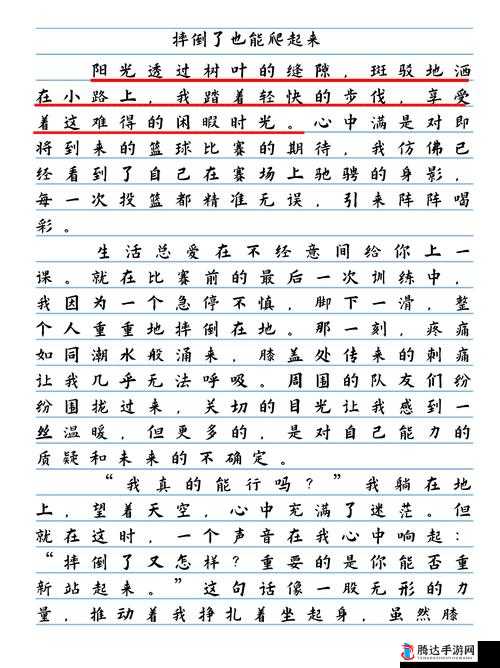 摔倒了也能爬起来
阳光透过树叶的缝隙，斑驳地洒
在小路上，我踏着轻快的步伐，享受
着这难得的闲暇时光。心中满是对即
将到来的篮球比赛的期待，我仿佛已
经看到了自己在赛场上驰骋的身影，
每一次投篮都精准无误，引来阵阵喝
彩。
生活总爱在不经意间给你上一
课。就在比赛前的最后一次训练中，
我因为一个急停不慎，脚下一滑，整
个人重重地摔倒在地。那一刻，疼痛
如同潮水般涌来，膝盖处传来的刺痛
让我几乎无法呼吸。周围的队友们纷
纷围拢过来，关切的目光让我感到一
丝温暖，但更多的，是对自己能力的
质疑和未来的不确定。
“我真的能行吗？”我躺在地
上，望着天空，心中充满了迷茫。但
就在这时，一个声音在我心中响起：
“摔倒了又怎样？重要的是你能否重
新站起来。”这句话像一股无形的力
量，推动着我挣扎着坐起身，虽然膝
腾达手游网